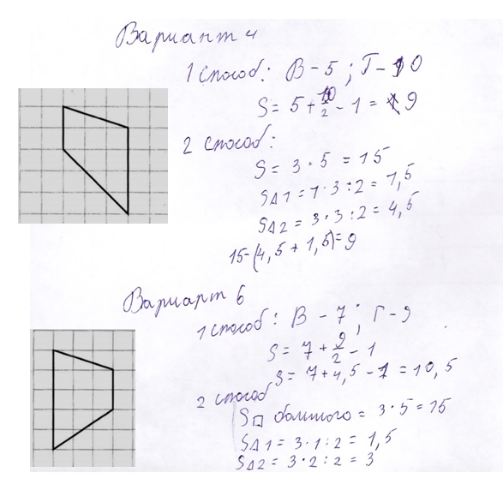 Вариант 4
1 способ: В - 5 ; Г - 10
S = 5 + 10/2 - 1 = 9
2 способ:
S = 3 · 5 = 15
S△1 = 1 · 3 : 2 = 1,5
S△2 = 3 · 3 : 2 = 4,5
15-(4,5 + 1,5)=9
Вариант 6
1 способ: В - 7 ; Г - 9
S = 7 + 9/2 - 1
S = 7 + 4,5 - 1 = 10,5
2 способ
S□ большого = 3 · 5 = 15
S△1 = 3 · 1 : 2 = 1,5
S△2 = 3 · 2 : 2 = 3